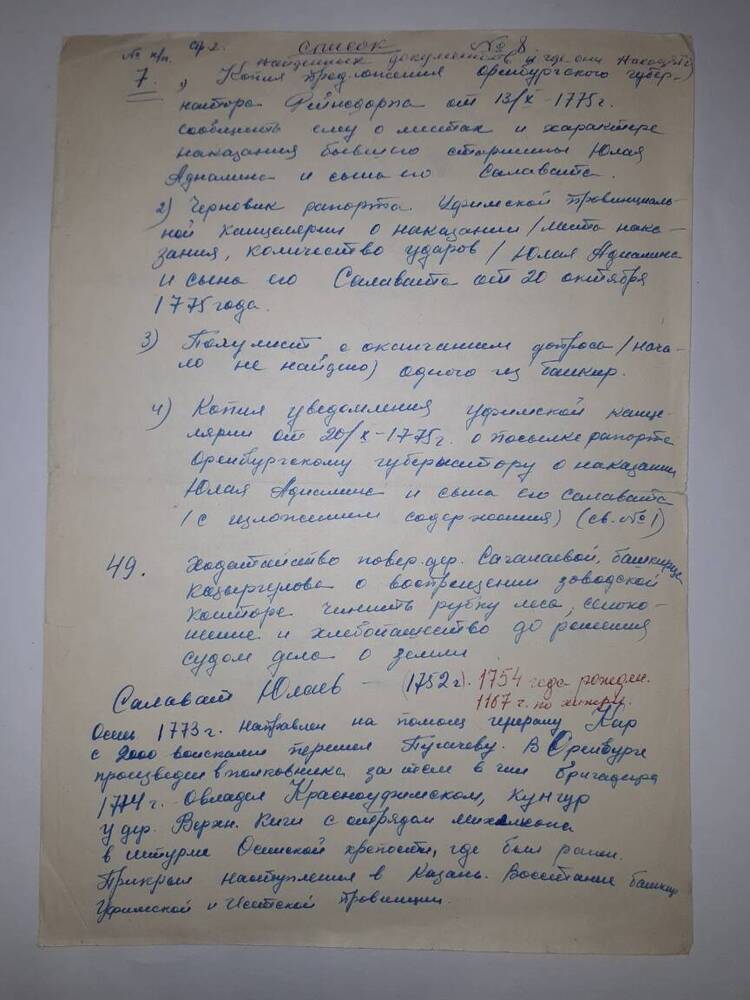 № п/п. стр 2. Список № 8
найденных документов и где они находятся
7. 1) Копия предложения оренбургского губер-
натора Рейнсдорпа от 13/X-1775г.
сообщить ему о местах и характере
наказания бывшего старшины Юлая
Азналина и сына его Салавата.
2) Черновик рапорта Уфимской провинциаль-
ной канцелярии о наказании /места нака-
зания, количество ударов/ Юлая Азналина
и сына его Салавата от 20 октября
1775 года.
3) Полулист с окончанием допроса /нача-
ло не найдено) одного из башкир.
4) Копия уведомления Уфимской канце-
лярии от 20/X-1775г. о посылке рапорта
Оренбургскому губернатору о наказании
Юлая Азналина и сына его Салавата
/с изложением содержания) (св. №1)
49. Ходатайство повер. дер. Сагалаевой, башкирца
о воспрещении заводской
конторе чинить рубку леса, сеноко-
шение и хлебопашество до решения
судом дела о земли
Салават Юлаев - (1752г). 1754 года рожден.
1167 г. по
Осень 1773г. Направлен на помощ генералу Кар
с 2000 войсками перешел Пугачеву. В Оренбурге
произведен в полковника затем в чин бригадира
1774г. Овладел Красноуфимском, Кунгур
у дер. Верхн. Киги с отрядом Михельсона
в штурме Осинской крепости, где был ранен.
Прикрыл наступления в Казань. Восстание башкир
Уфимской и Исетской провинции.